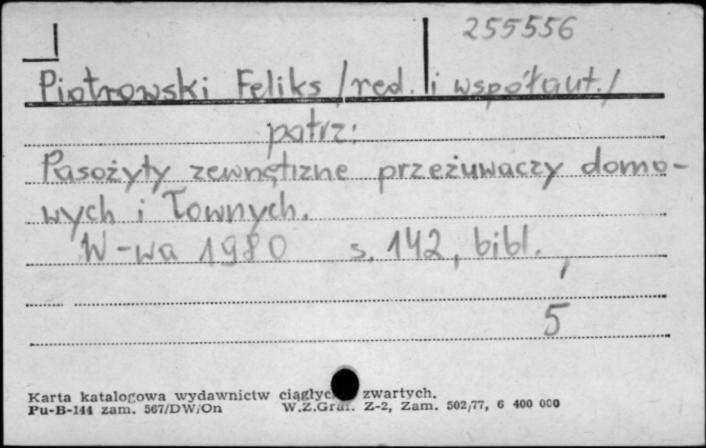 255556
Piotrowski Feliks /red. i współaut./
patrz:
Pasożyty zewnętrzne przeżuwaczy domo-
wych i łownych.
W-wa 1980 s. 142, bibl.
5
Karta katalogowa wydawnictw zwartych.
Pu-B-144 zam. 567/DW/On W.Z.Graf. Z-2, Zam. 502/77, 6 400 000